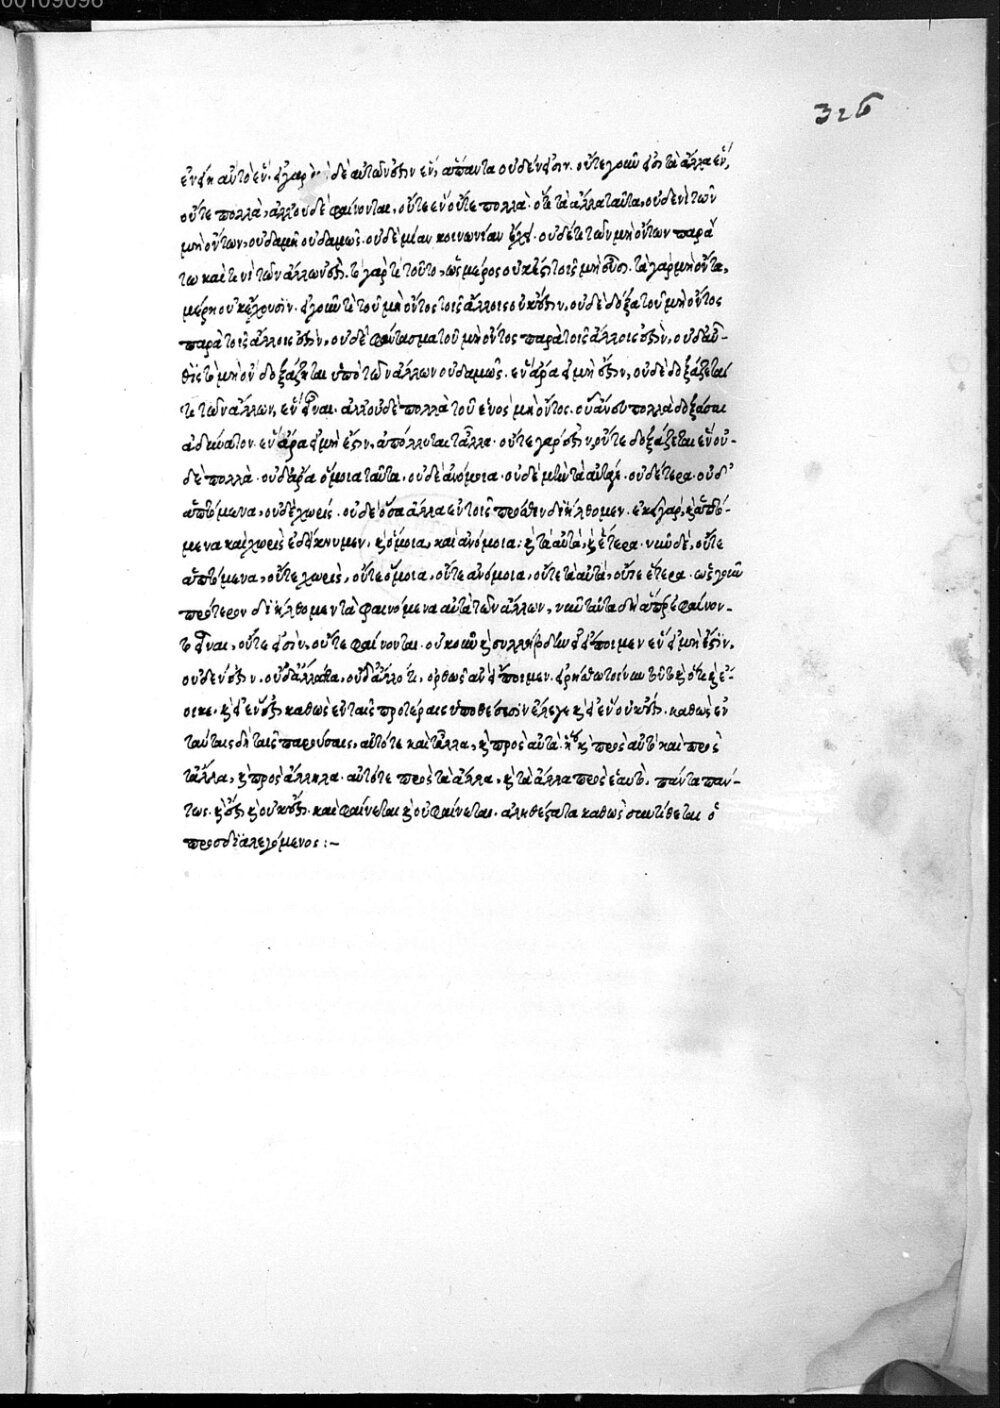 00109098
326
ἐνείη αὐτὸ ἕν. εἰ γὰρ δὲ αὐτῶν ἐστιν ἕν, ἅπαντα οὐδέν ἐστιν. οὔτε γοῦν ἐστι τὰ ἄλλα ἕν,
οὔτε πολλὰ, ἀλλ' οὐδὲ φαίνονται, οὔτε ἓν οὔτε πολλὰ. ὅτι τὰ ἄλλα ταῦτα, οὐδενὶ τῶν
μὴ ὄντων, οὐδαμῆ οὐδαμῶς. οὐδεμίαν κοινωνίαν ἔχει. οὐδέ τι τῶν μὴ ὄντων παρά
τω καὶ τινὶ τῶν ἄλλων ἐστὶ. τὸ γάρ τι τοῦτο, ὡς μέρος οὐκ ἔστι τοῖς μὴ οὖσι. τὰ γὰρ μὴ ὄντα,
μέρη οὐκ ἔχουσιν. εἰ γοῦν τὶ τοῦ μὴ ὄντος τοῖς ἄλλοις οὐκ ἔστιν, οὐδὲ δόξα τοῦ μὴ ὄντος
παρὰ τοῖς ἄλλοις ἐστὶν, οὐδὲ φάντασμα τοῦ μὴ ὄντος παρὰ τοῖς ἄλλοις ἐστὶν, οὐδ' αὖ-
θις τὸ μὴ ὂν δοξάζεται ὑπὸ τῶν ἄλλων οὐδαμῶς. ἓν ἄρα εἰ μὴ ἔστιν, οὐδὲ δοξάζεταί
τι τῶν ἄλλων, ἓν εἶναι. ἀλλ' οὐδὲ πολλὰ τοῦ ἑνὸς μὴ ὄντος. οὗ ἄνευ πολλὰ δοξάσαι
ἀδύνατον. ἓν ἄρα εἰ μὴ ἔστιν, ἀπόλλυται τἆλλα. οὔτε γάρ ἐστιν, οὔτε δοξάζεται ἓν οὐ-
δὲ πολλὰ. οὐδ' ἄρα ὅμοια ταῦτα, οὐδὲ ἀνόμοια. οὐδὲ μὴν τὰ αὐτά γε. οὐδ' ἕτερα. οὐδ'
ἁπτόμενα, οὐδὲ χωρίς. οὐδὲ ὅσα ἄλλα ἐν τοῖς πρόσθεν διήλθομεν. ἐκεῖ γάρ, καὶ ἁπτό-
μενα καὶ χωρὶς ἐδείκνυμεν, καὶ ὅμοια, καὶ ἀνόμοια: καὶ τὰ αὐτά, καὶ ἕτερα. νῦν δὲ, οὔτε
ἁπτόμενα, οὔτε χωρὶς, οὔτε ὅμοια, οὔτε ἀνόμοια, οὔτε τὰ αὐτὰ, οὔτε ἕτερα. ὡς γοῦν
πρότερον διήλθομεν τὰ φαινόμενα αὐτὰ τῶν ἄλλων, νῦν ταῦτα δὴ ἅπερ ἐφαίνον-
το εἶναι, οὔτε ἐστὶν, οὔτε φαίνονται. οὐκοῦν καὶ συλλήβδην εἰ εἴποιμεν ἓν εἰ μὴ ἔστιν,
οὐδέν ἐστιν. ὀρθῶς ἂν εἴποιμεν. εἰρήσθω τοίνυν τοῦτό καὶ ὅτι καὶ ἔ-
οικε. καὶ εἰ ἕν ἐστι καθὼς ἐν ταῖς προτέραις ὑποθέσεσιν ἔλεγε καὶ εἰ ἓν οὐκ ἔστι. καθὼς ἐν
ταύταις δὴ ταῖς παρούσαις, αὐτό τε καὶ τἆλλα, καὶ πρὸς αὑτὰ καὶ πρὸς
τἆλλα, καὶ πρὸς ἄλληλα. αὐτό τε πρὸς τὰ ἄλλα, καὶ τὰ ἄλλα πρὸς ἑαυτὸ. πάντα πάν-
τως. καὶ ἔστι καὶ οὐκ ἔστι. καὶ φαίνεται καὶ οὐ φαίνεται. ἀληθέστατα καθὼς συντίθεται ὁ
προσδιαλεγόμενος :-